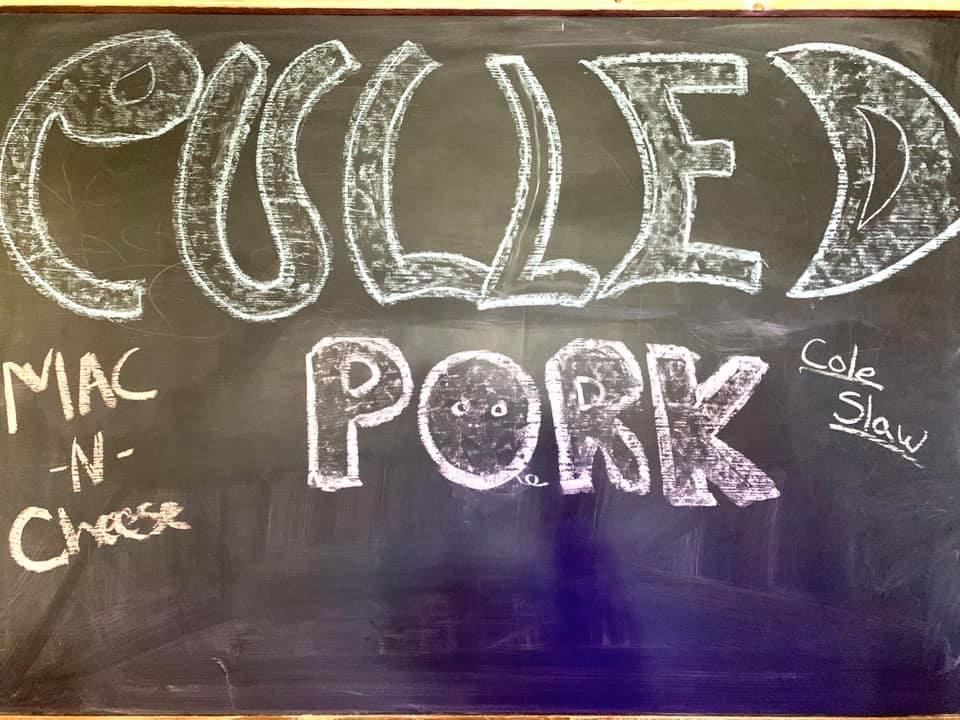 PULLED
PORK
MAC
-N-
Cheese
Cole
Slaw